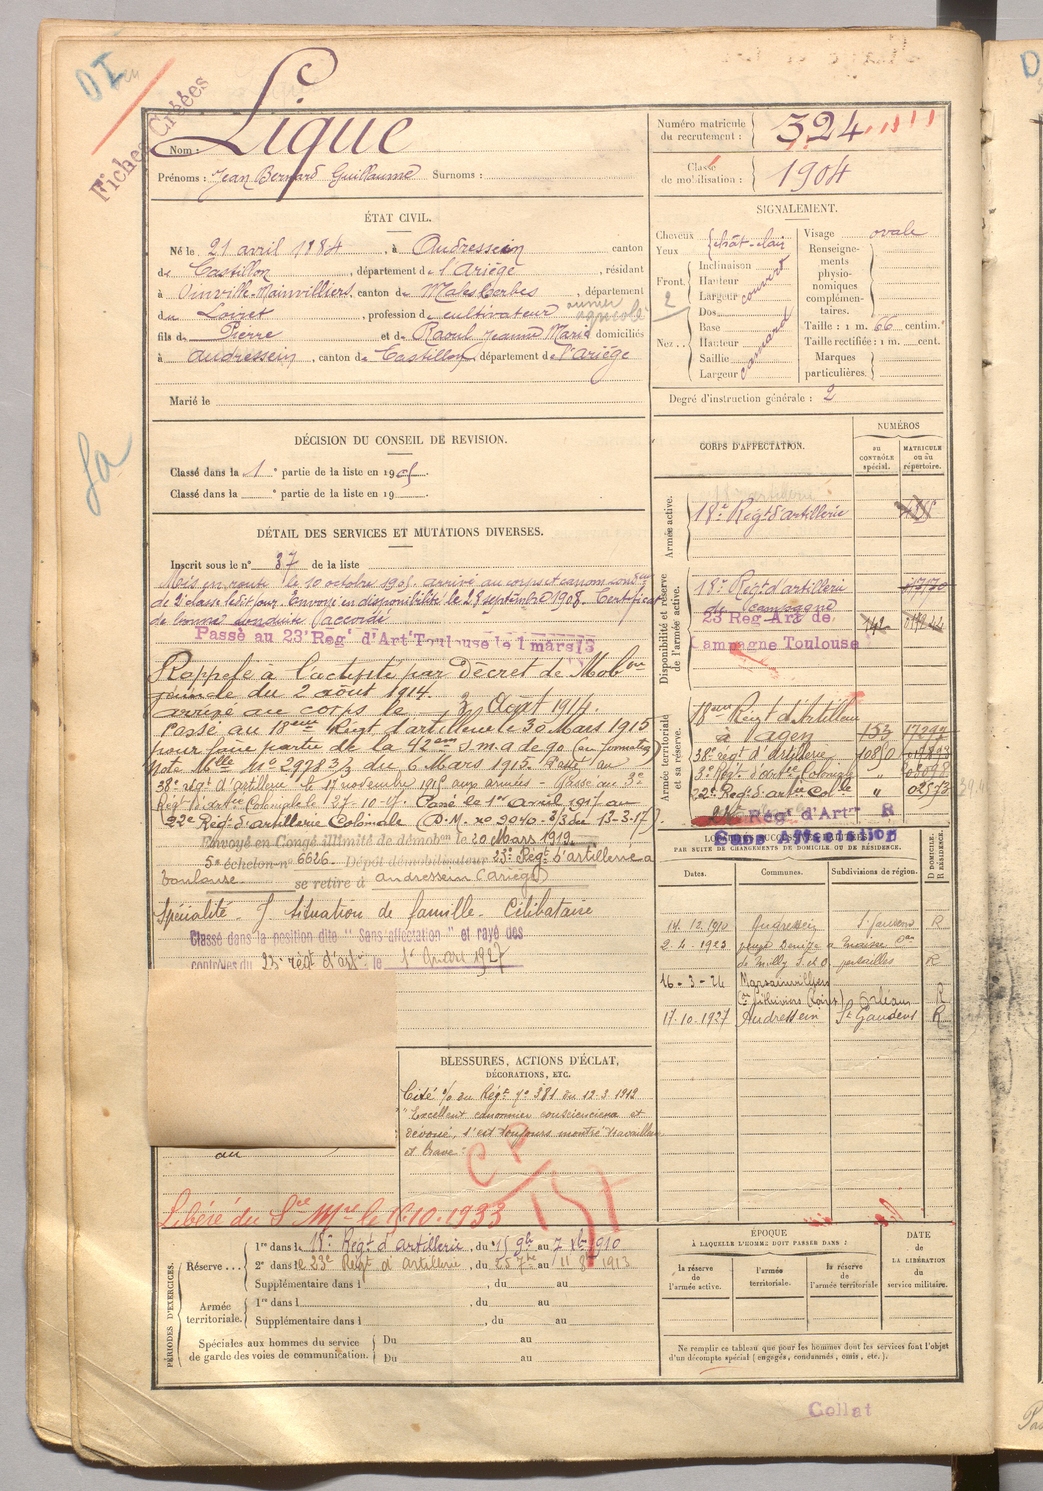 DI
Fiches Créées
Nom : Lique
Prénoms : Jean Bernard Guillaume Surnoms :
Numéro matricule du recrutement : 324
Classe de mobilisation : 1904
ÉTAT CIVIL.
Né le 21 avril 1884, à Audressein canton
de Castillon, département de l'Ariège, résidant
à Oinville-Mainvilliers, canton de Malesherbes, département
du Loiret, profession de cultivateur ouvrier agricole
fils de Pierre et de Raoul Jeanne Marie domiciliés
à audressein, canton de Castillon, département de l'ariège
Marié le
SIGNALEMENT.
Cheveux
Yeux
chât-clair
Front.
Inclinaison
Hauteur
Largeur
couvert
2
Nez..
Dos
Base
Hauteur
Saillie
Largeur
camard
Visage ovale
Renseignements physionomiques complémentaires.
Taille : 1 m. 66 centim.
Taille rectifiée : 1 m. cent.
Marques particulières.
Degré d'instruction générale : 2
DÉCISION DU CONSEIL DE REVISION.
Classé dans la 1e partie de la liste en 1905.
Classé dans la e partie de la liste en 19
DÉTAIL DES SERVICES ET MUTATIONS DIVERSES.
Inscrit sous le n° 37 de la liste
Mis en route le 10 octobre 1905. arrivé au corps et canonnier conducteur
de 2e classe ledit jour. Envoyé en disponibilité le 28 septembre 1908. Certificat
de bonne conduite accordé
Passé au 23e Régt d'Art Toulouse le 1 mars 13
Rappelé à l'activité par Décret de Mobon
générale du 2 août 1914.
arrivé au corps le 3 Août 1914.
Passé au 18eme Régt d'artillerie le 30 Mars 1915
pour faire partie de la 42eme S.m.a de 90 (en formation)
Note Mlle No 2978 3/3 du 6 Mars 1915. Passé au
38e régt d'artillerie le 17 novembre 1915 aux armées - Passé au 3e
Régt d'artie Coloniale le 27-10-17. Passé le 1er Avril 1917 au
22e Régt d'artillerie Coloniale (D.M. no 2040-3/3 du 13-3-17).
Envoyé en Congé illimité de démobon le 20 Mars 1919
5e échelon no 6626 Dépôt démobilisateur 23e Régt d'artillerie à
Toulouse se retire à audressein (ariège)
Spécialité - J. Situation de famille - Célibataire
Classé dans la position dite "Sans affectation" et rayé des
contrôles du 23e régt d'art le 1er Mars 1927
au
BLESSURES, ACTIONS D'ÉCLAT,
DÉCORATIONS, ETC.
Cité % du Régt no 381 du 12-3-1919
"Excellent canonnier consciencieux et
dévoué, s'est toujours montré travailleur
et brave."
CP
157
Libéré du Sce Mre le 15.10.1933
CORPS D'AFFECTATION.
NUMÉROS
au CONTRÔLE spécial.
MATRICULE ou au répertoire.
Armée active.
18e Régt d'artillerie
Disponibilité et réserve de l'armée active.
18e Régt d'artillerie
de campagne
23 Reg Art de
Campagne Toulouse
Armée territoriale et sa réserve.
18eme Régt d'Artillerie
à Agen 153 17292
38e régt d'artillerie 1080
3e Régt. d'artie Coloniale "
22e Régt d'artie Cole " 02573
Régt d'Artie R
Sans Affectation
LOCALITÉS SUCCESSIVES HABITÉES
PAR SUITE DE CHANGEMENTS DE DOMICILE OU DE RÉSIDENCE.
Dates. Communes. Subdivisions de région. D DOMICILE. R RÉSIDENCE.
14.12.1910 Audressein St Gaudens R
2.4.1923 Moisse Con
de Milly S.et O. Versailles R
16-3-26 Marsainvilliers
Con Pithiviers (Loiret) Orléans R
17.10.1927 Audressein St Gaudens R
PÉRIODES D'EXERCICES.
Réserve...
1re dans le 18e Régt d'artillerie, du 15 9bre au 7 Xbre 1910
2e dans le 23e Régt d'artillerie, du 25 7bre au 11 8bre 1913
Supplémentaire dans l , du au
Armée territoriale.
1re dans l , du au
Supplémentaire dans l , du au
Spéciales aux hommes du service de garde des voies de communication.
Du au
Du au
ÉPOQUE
À LAQUELLE L'HOMME DOIT PASSER DANS :
la réserve de l'armée active.
l'armée territoriale.
la réserve de l'armée territoriale
DATE de LA LIBÉRATION du service militaire.
Ne remplir ce tableau que pour les hommes dont les services font l'objet
d'un décompte spécial (engagés, condamnés, omis, etc.).
Collat